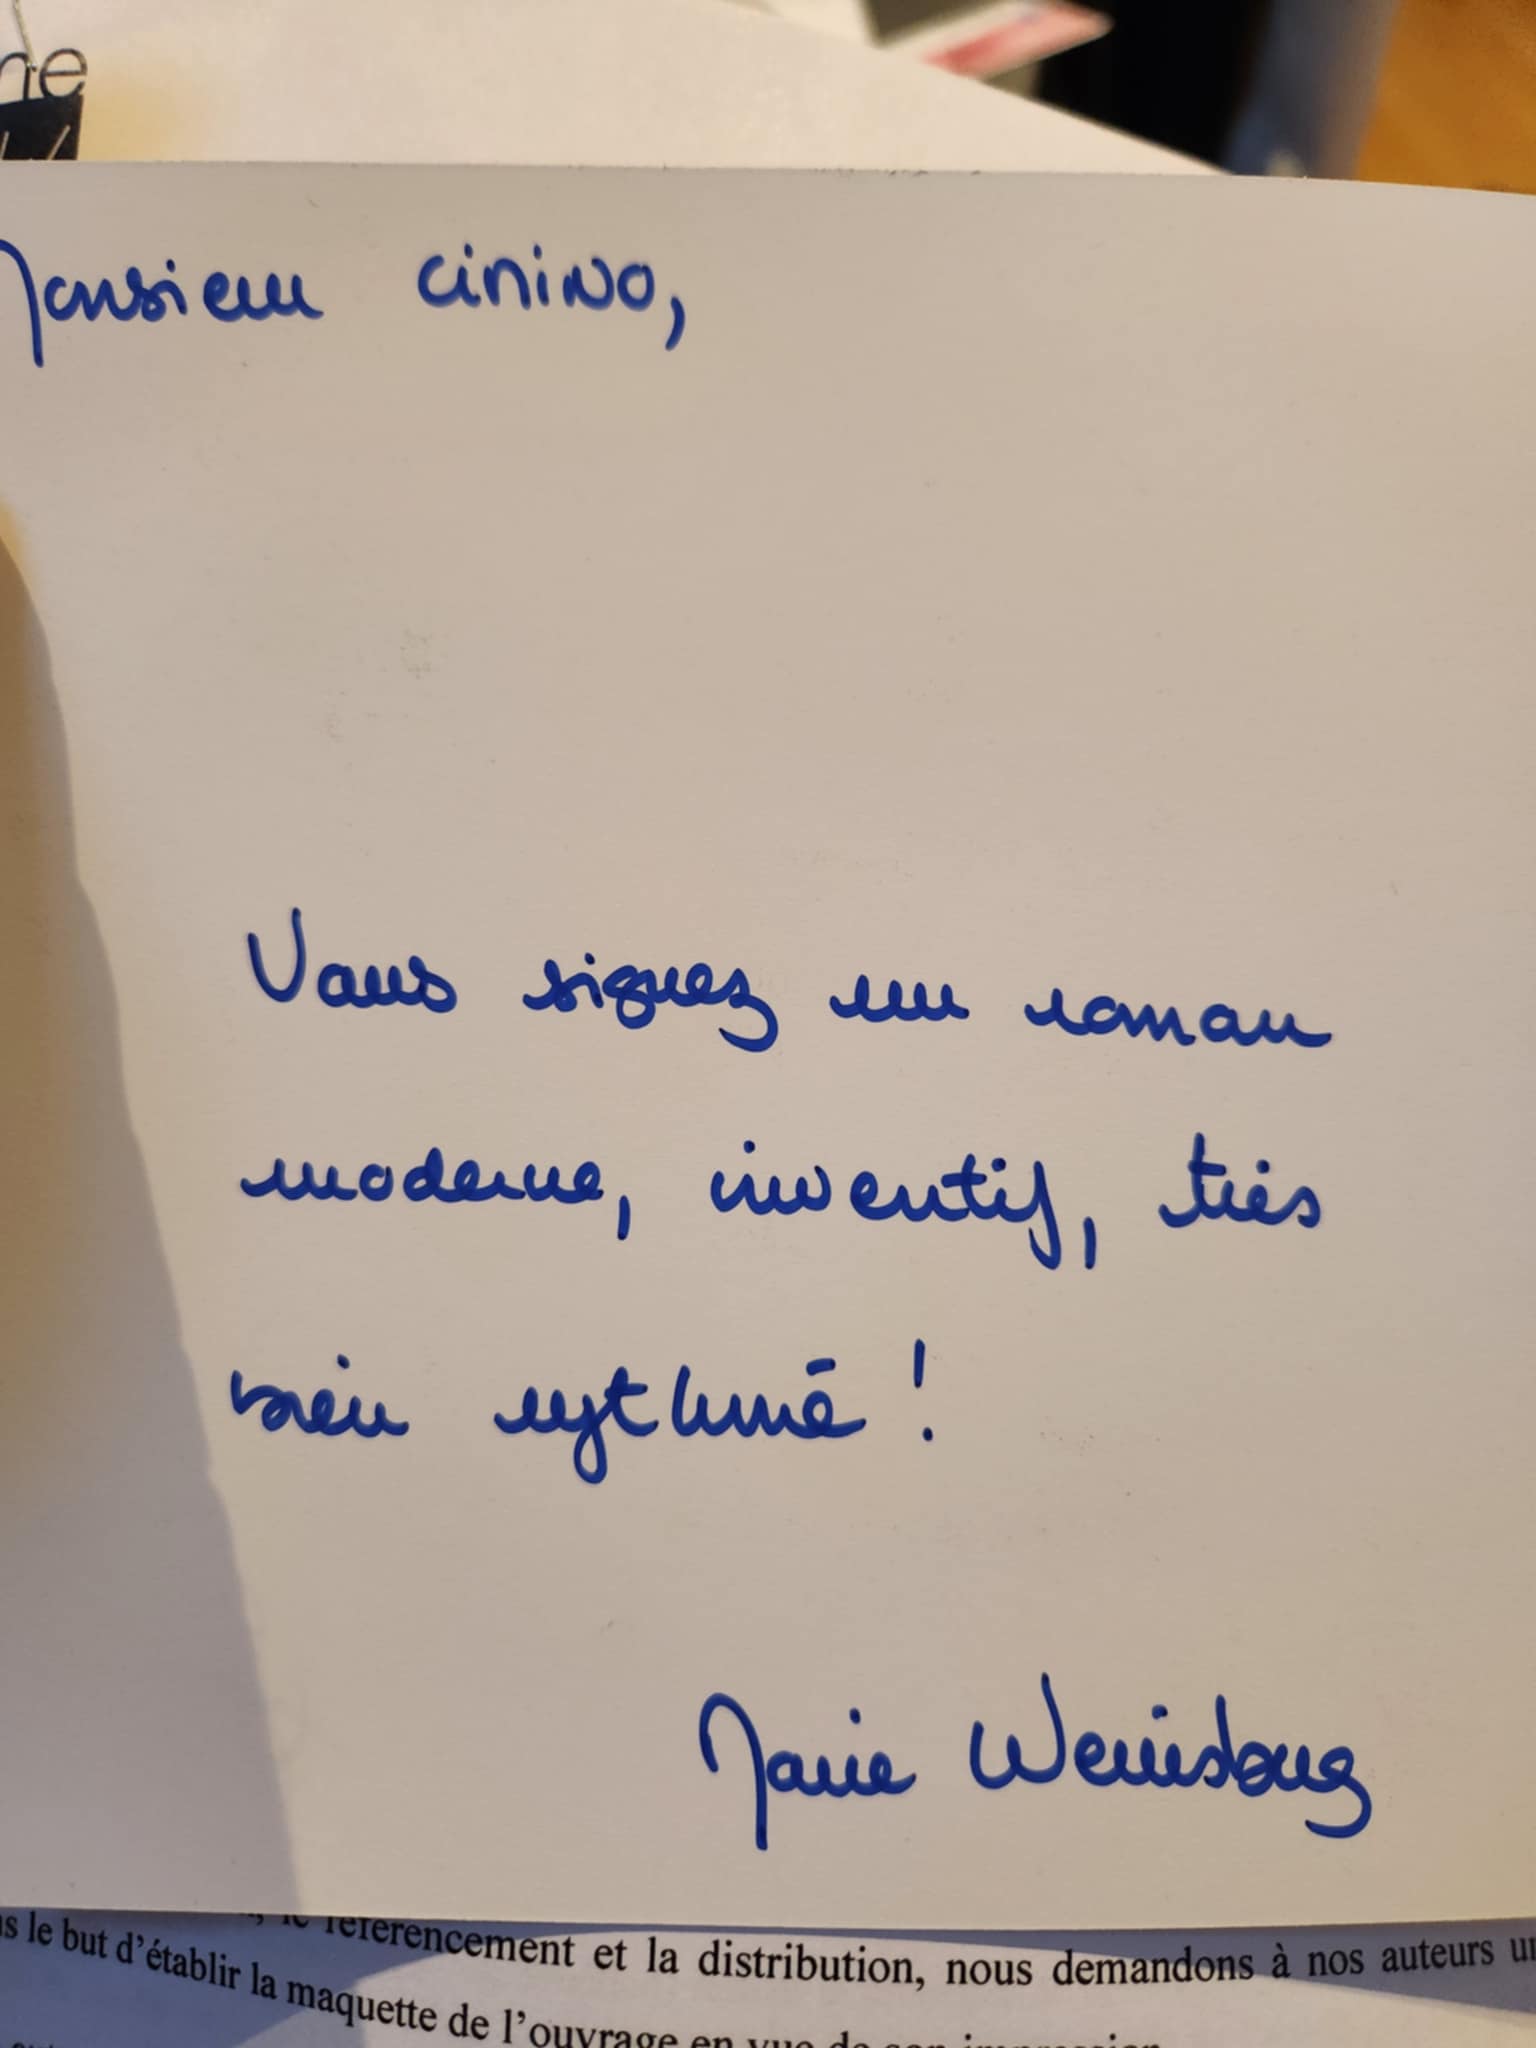 ne
Monsieur CINiNO,
Vous signez un roman
moderne, inventif, très
bien rythmé !
Marie Weinsberg
le référencement et la distribution, nous demandons à nos auteurs
le but d'établir la maquette de l'ouvrage en vue de son impression